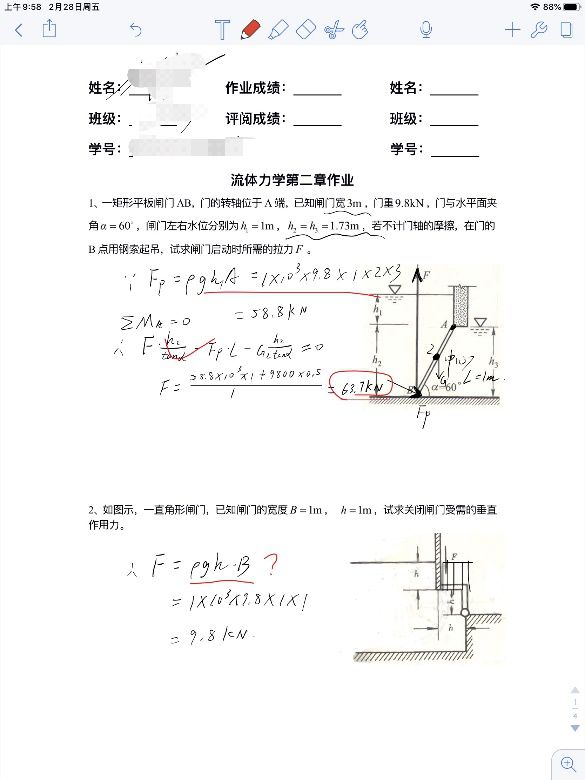 上午9:58 2月28日周五
88%
姓名: 作业成绩: 姓名:
班级: 评阅成绩: 班级:
学号: 学号:
流体力学第二章作业
1、一矩形平板闸门 AB, 门的转轴位于 A 端, 已知闸门宽3m, 门重9.8kN, 门与水平面夹
角α=60°, 闸门左右水位分别为 h₁=1m, h₂=h₃=1.73m, 若不计门轴的摩擦, 在门的
B 点用钢索起吊, 试求闸门启动时所需的拉力 F 。
∵ Fp = ρgh₁A = 1×10³×9.8×1×2×3
= 58.8kN
ΣM_A=0
∴ F·h₂/tanα - Fp·L - G·h₂/2tanα = 0
F = (58.8×10³×1+9800×0.5)/1 = 63.7kN
F
h₁
A
h₂
2
h₃
G
L=1m.
B
α=60°
Fp
2、如图示, 一直角形闸门, 已知闸门的宽度 B=1m, h=1m, 试求关闭闸门受需的垂直
作用力。
∴ F = ρgh·B ?
= 1×10³×9.8×1×1
= 9.8kN.
F
h
h
h
1
4